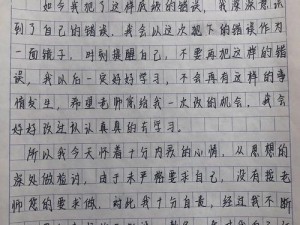 如今我犯了这样低级的错误，我深深意认
到了自己的错误，我会从这次犯下的错误作为
一面镜子，时刻提醒自己，不要再犯这样的错
误，我以后一定好好学习，不会再有这样的事
情发生，希望老师能给我一次改的机会，我会
好好改过认认真真的去学习。
所以我今天怀着十分内疚的心情，从思想的
深处做检讨，由于未严格要求自己，没有按老
师您的要求做，对此我十分自责，经过我不断